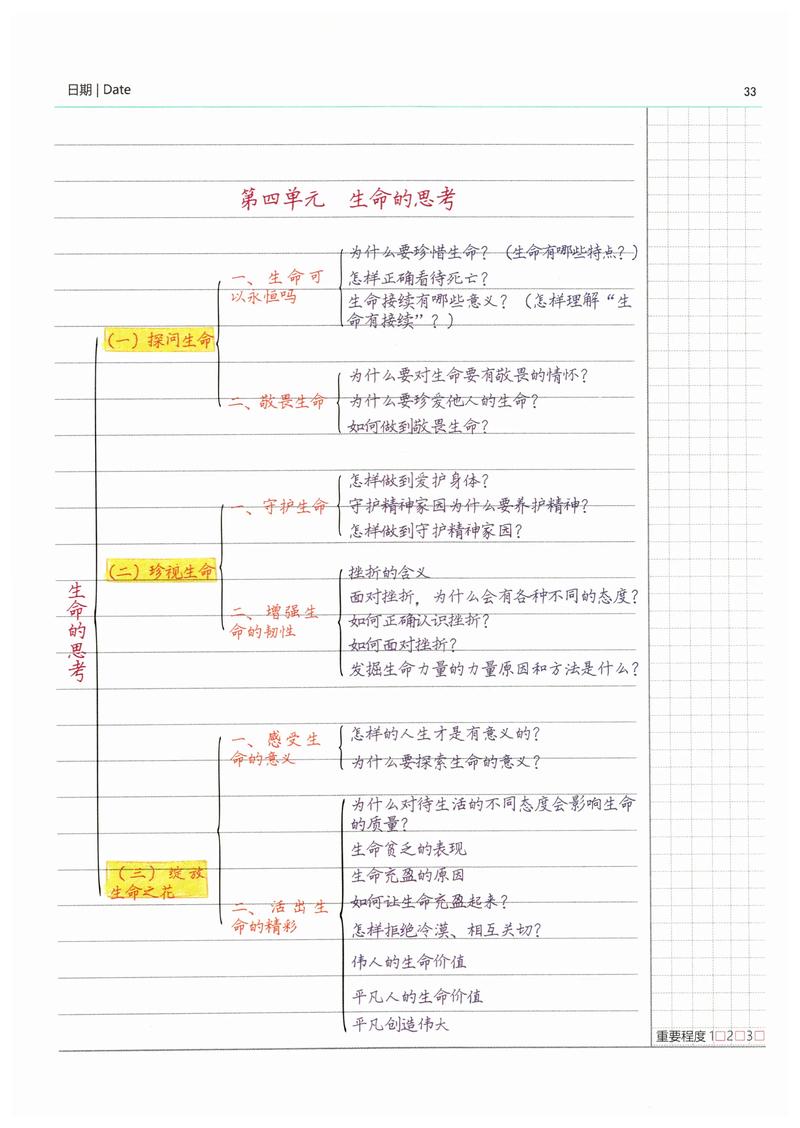 日期 | Date
33
第四单元 生命的思考
生命的思考
(一)探问生命
一、生命可
以永恒吗
为什么要珍惜生命?(生命有哪些特点?)
怎样正确看待死亡?
生命接续有哪些意义?(怎样理解“生
命有接续”?)
二、敬畏生命
为什么要对生命要有敬畏的情怀?
为什么要珍爱他人的生命?
如何做到敬畏生命?
(二)珍视生命
一、守护生命
怎样做到爱护身体?
守护精神家因为什么要养护精神?
怎样做到守护精神家因?
二、增强生
命的韧性
挫折的含义
面对挫折,为什么会有各种不同的态度?
如何正确认识挫折?
如何面对挫折?
发掘生命力量的力量原因和方法是什么?
(三)绽放
生命之花
一、感受生
命的意义
怎样的人生才是有意义的?
为什么要探索生命的意义?
二、活出生
命的精彩
为什么对待生活的不同态度会影响生命
的质量?
生命贫乏的表现
生命充盈的原因
如何让生命充盈起来?
怎样拒绝冷漠、相互关切?
伟人的生命价值
平凡人的生命价值
平凡创造伟大
重要程度 1□2□3□